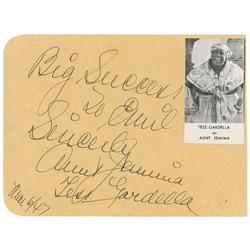 Big Success
to Emil
Sincerely
Aunt Jemima
Tess Gardella
Mar 6/47
TESS GARDELLA
as
AUNT JEMIMA